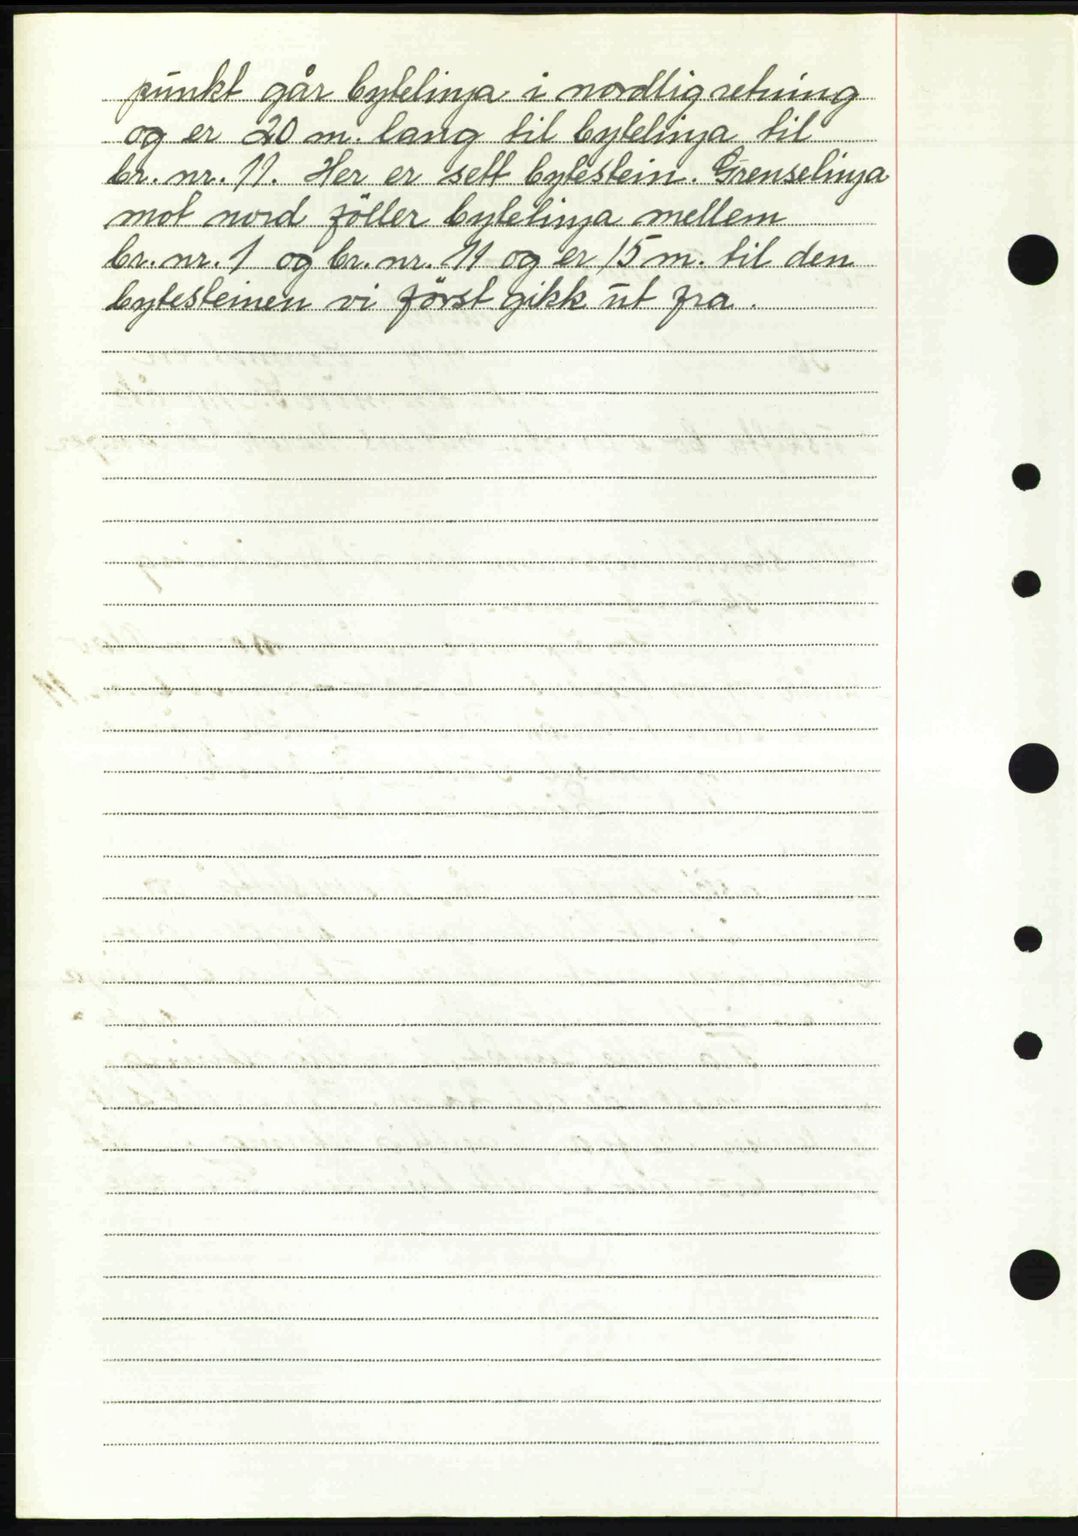 punkt går bytelinja i nordlig retning
og er 20 m. lang til bytelinja til
br. nr. 11. Her er sett bytestein. Grenselinja
mot nord föller bytelinja mellem
br. nr. 1 og br. nr. 11 og er 15 m. til den
bytesteinen vi först gikk ut fra.